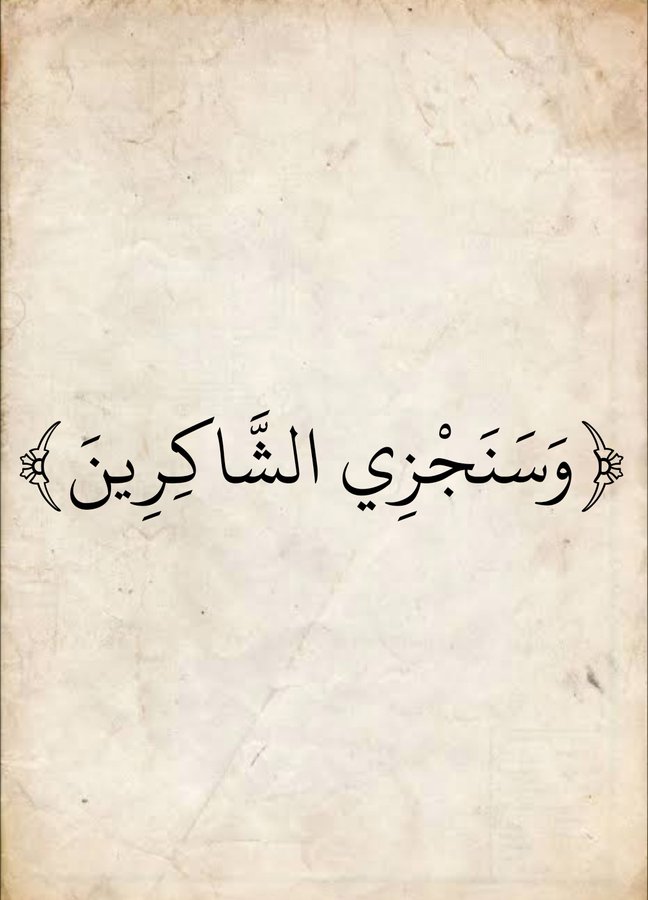 ﴿وَسَنَجْزِي الشَّاكِرِينَ﴾